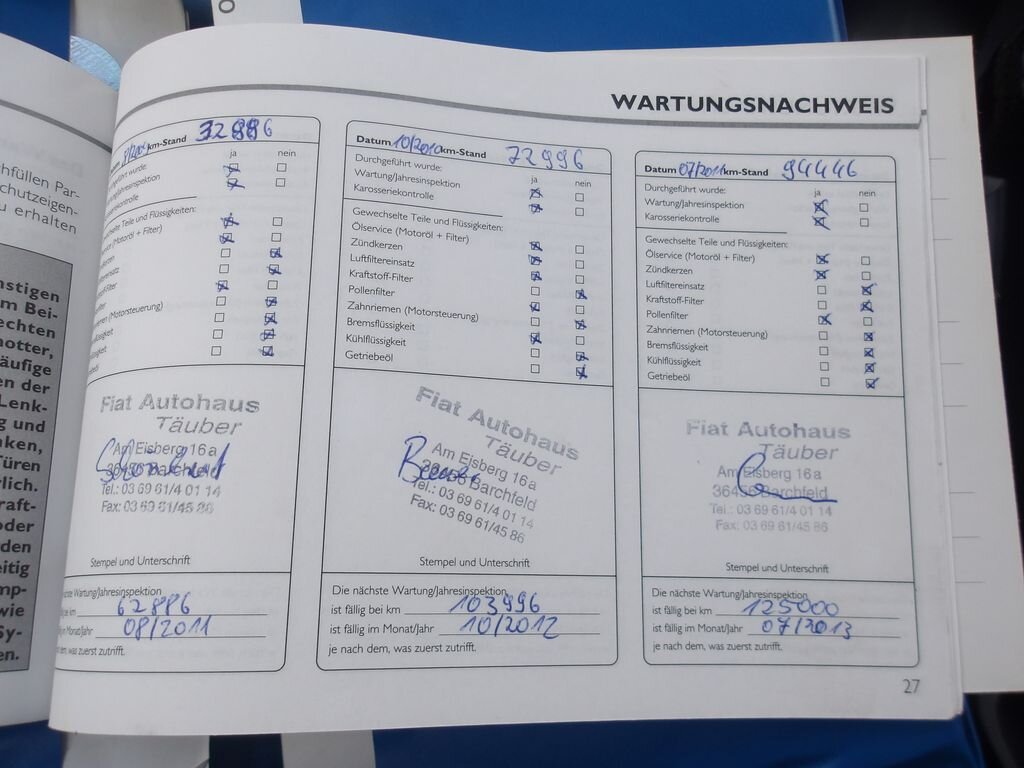 O
hfüllen Par-
chutzeigen-
u erhalten
nstigen
m Bei-
echten
notter,
äufige
en der
Lenk-
g und
nken,
Türen
rlich.
raft-
oder
den
eitig
mp-
wie
Sy-
en.
WARTUNGSNACHWEIS
km-Stand
ja nein
führt wurde:
Jahresinspektion
seriekontrolle
selte Teile und Flüssigkeiten:
(Motoröl + Filter)
(Motorsteuerung)
Fiat Autohaus
Täuber
Am Eisberg 16a
36456 Barchfeld
Tel.: 03 69 61/4 01 14
Fax: 03 69 61/45 86
Stempel und Unterschrift
Die nächste Wartung/Jahresinspektion
bei km 62886
Monat/Jahr 08/2011
dem, was zuerst zutrifft.
Datum 10/2010 km-Stand 72996
Durchgeführt wurde: ja nein
Wartung/Jahresinspektion
Karosseriekontrolle
Gewechselte Teile und Flüssigkeiten:
Ölservice (Motoröl + Filter)
Zündkerzen
Luftfiltereinsatz
Kraftstoff-Filter
Pollenfilter
Zahnriemen (Motorsteuerung)
Bremsflüssigkeit
Kühlflüssigkeit
Getriebeöl
Fiat Autohaus
Täuber
Am Eisberg 16a
36456 Barchfeld
Tel.: 03 69 61/4 01 14
Fax: 03 69 61/45 86
Stempel und Unterschrift
Die nächste Wartung/Jahresinspektion
ist fällig bei km 103996
ist fällig im Monat/Jahr 10/2012
je nach dem, was zuerst zutrifft.
Datum 07/2011 km-Stand 94446
Durchgeführt wurde: ja nein
Wartung/Jahresinspektion
Karosseriekontrolle
Gewechselte Teile und Flüssigkeiten:
Ölservice (Motoröl + Filter)
Zündkerzen
Luftfiltereinsatz
Kraftstoff-Filter
Pollenfilter
Zahnriemen (Motorsteuerung)
Bremsflüssigkeit
Kühlflüssigkeit
Getriebeöl
Fiat Autohaus
Täuber
Am Eisberg 16a
36456 Barchfeld
Tel.: 03 69 61/4 01 14
Fax: 03 69 61/45 86
Stempel und Unterschrift
Die nächste Wartung/Jahresinspektion
ist fällig bei km 125000
ist fällig im Monat/Jahr 07/2013
je nach dem, was zuerst zutrifft.
27